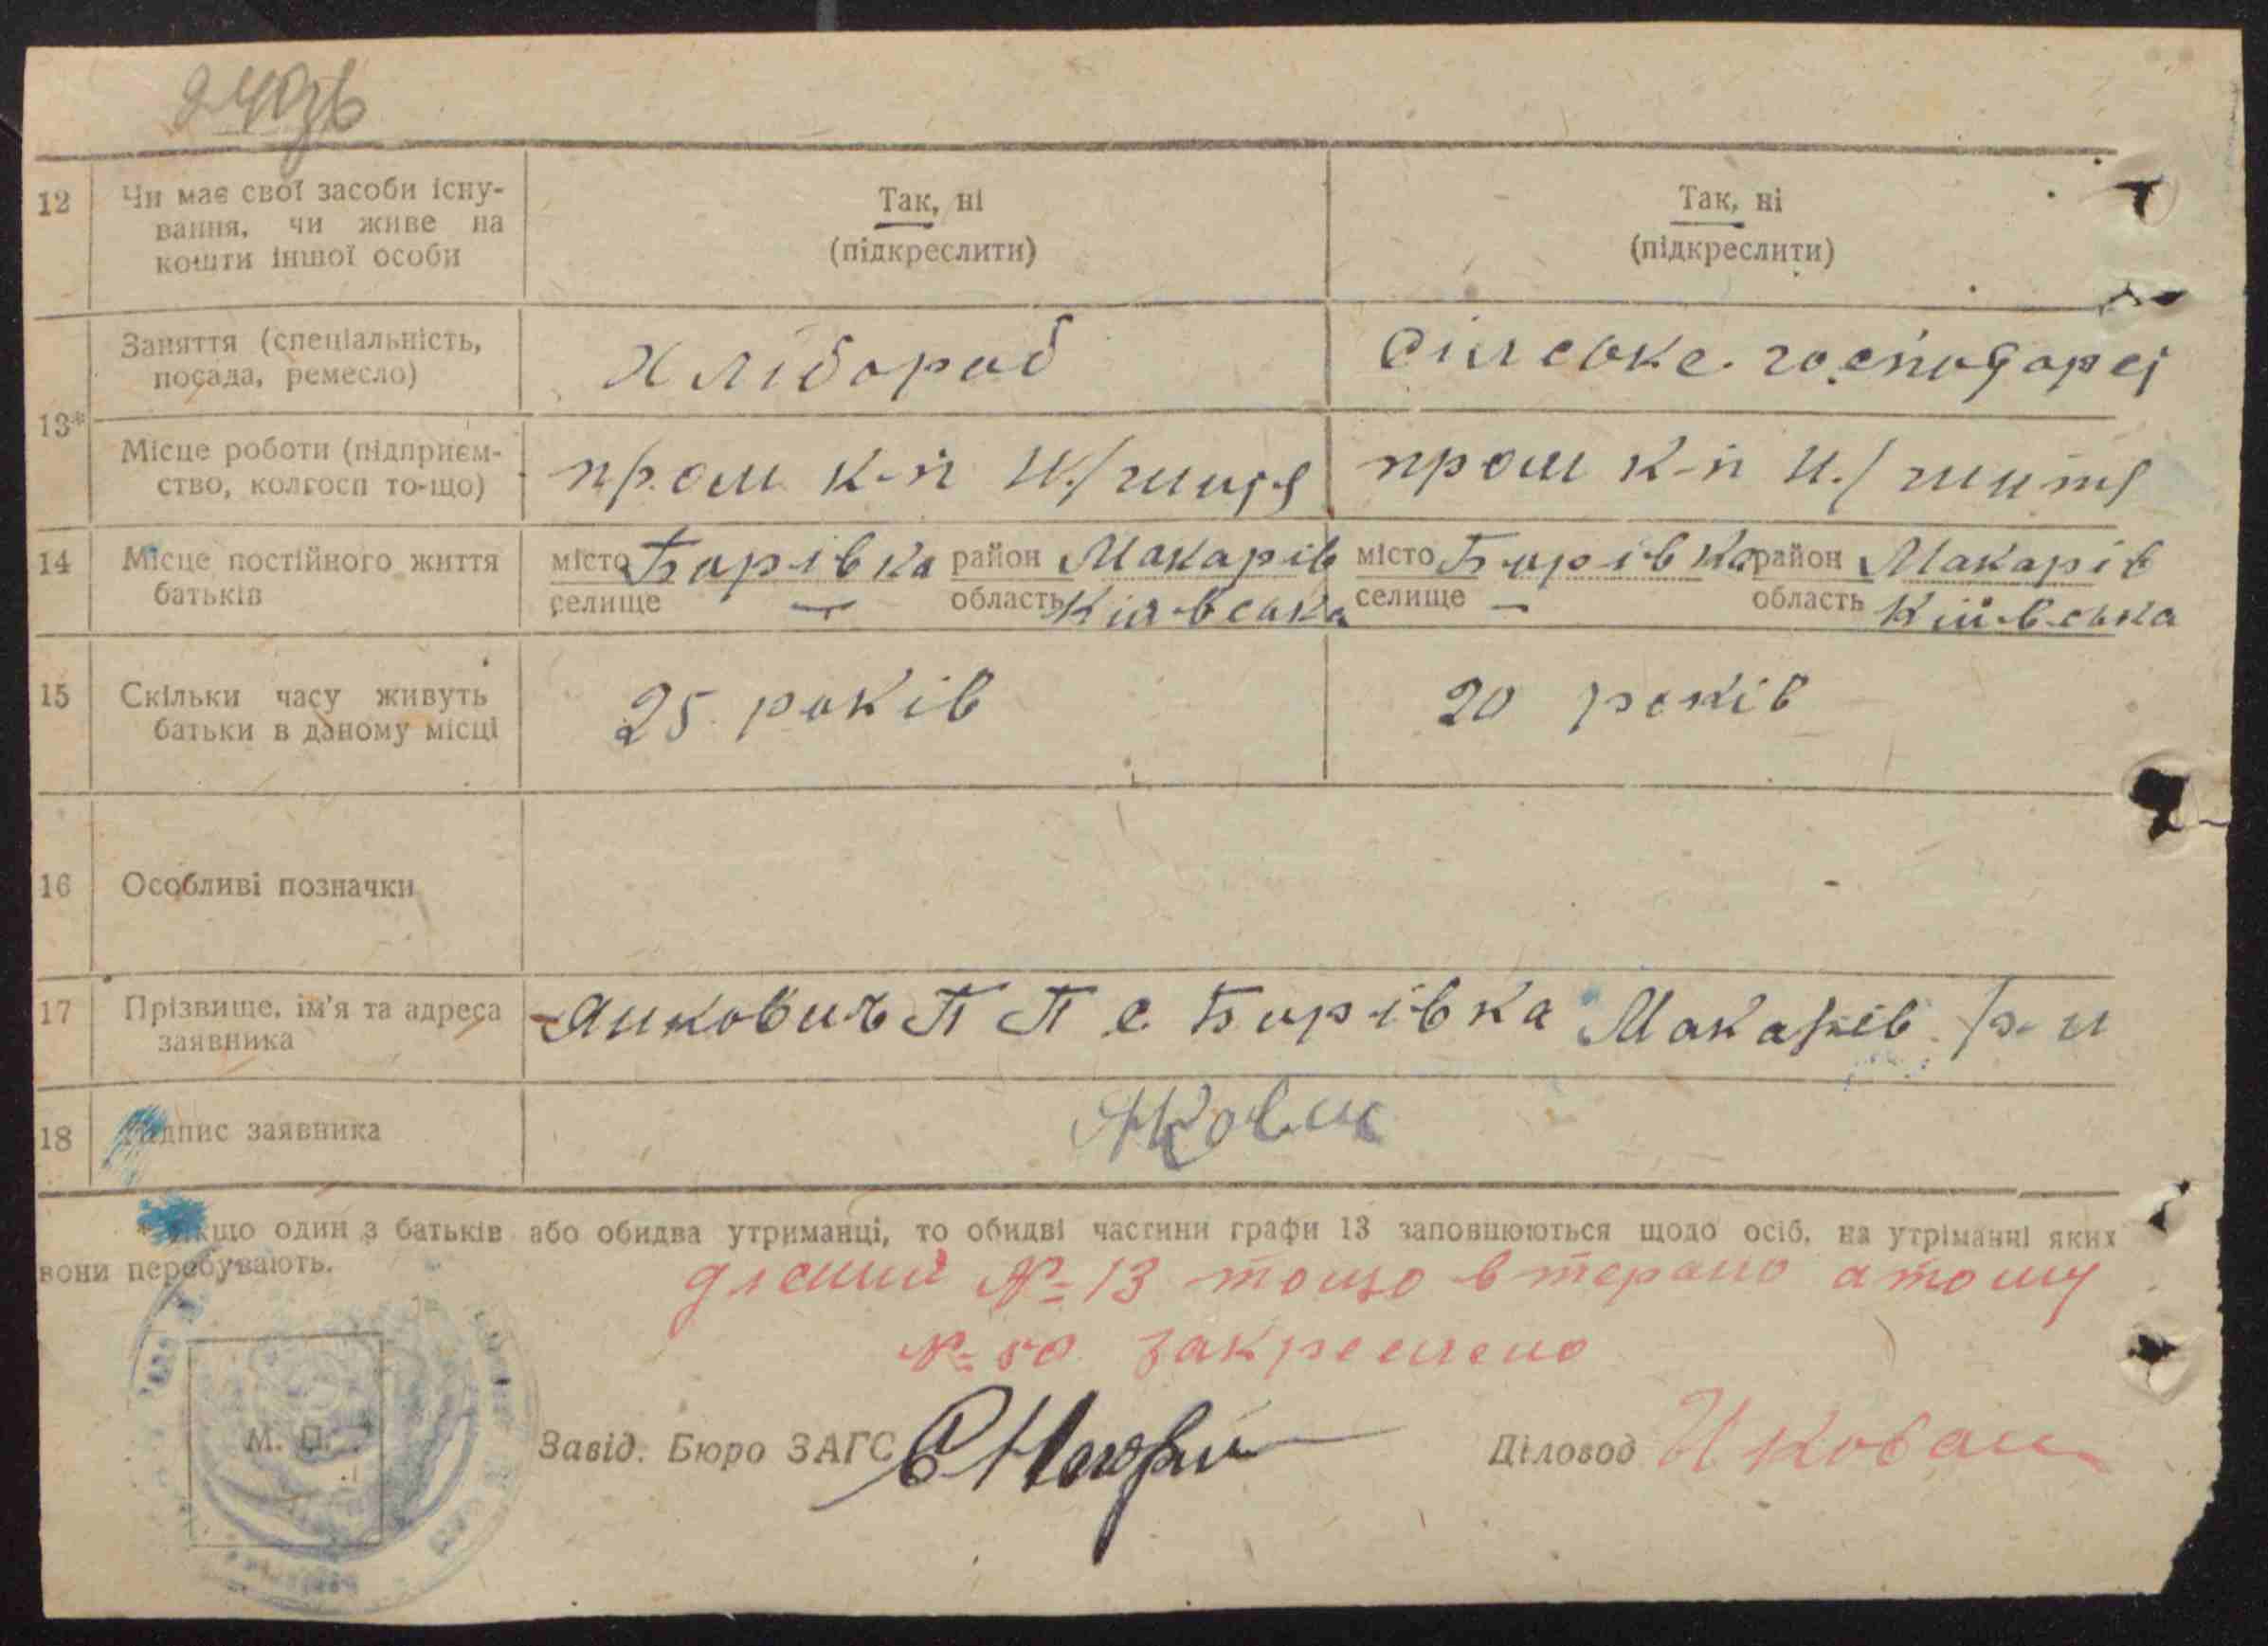 12 Чи має свої засоби існу-
вання, чи живе на
кошти іншої особи
Так, ні
(підкреслити)
Так, ні
(підкреслити)
13*
Заняття (спеціальність,
посада, ремесло)
Хлібороб
Сільське господарсі
Місце роботи (підприєм-
ство, колгосп то-що)
пром к-п
пром к-п
14 Місце постійного життя
батьків
місто Борівка район Макарів
селище — область Київська
місто Борівка район Макарів
селище — область Київська
15 Скільки часу живуть
батьки в даному місці
25 років
20 років
16 Особливі позначки
17 Прізвище, ім'я та адреса
заявника
Янкович П П с. Борівка Макарів р-н
18 Підпис заявника
* Якщо один з батьків або обидва утриманці, то обидві частини графи 13 заповнюються щодо осіб, на утріманні яких
вони перебувають.
дісний № 13 тощо втерано атому
№ 50 закреслено
М. П.
Завід. Бюро ЗАГС
Діловод